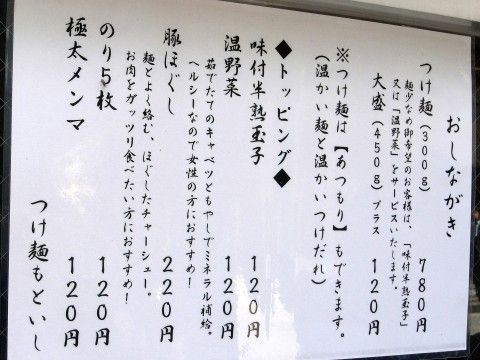 おしながき
つけ麺(300g) 780円
麺少なめ御希望のお客様は、「味付半熟玉子」
又は「温野菜」をサービスいたします。
大盛(450g)プラス 120円
※つけ麺は【あつもり】もできます。
(温かい麺と温かいつけだれ)
◆トッピング◆
味付半熟玉子 120円
温野菜 120円
茹でたてのキャベツともやしでミネラル補給。
ヘルシーなので女性の方におすすめ!
豚ほぐし 220円
麺とよく絡む、ほぐしたチャーシュー。
お肉をガッツリ食べたい方におすすめ!
のり5枚 120円
極太メンマ 120円
つけ麺もといし